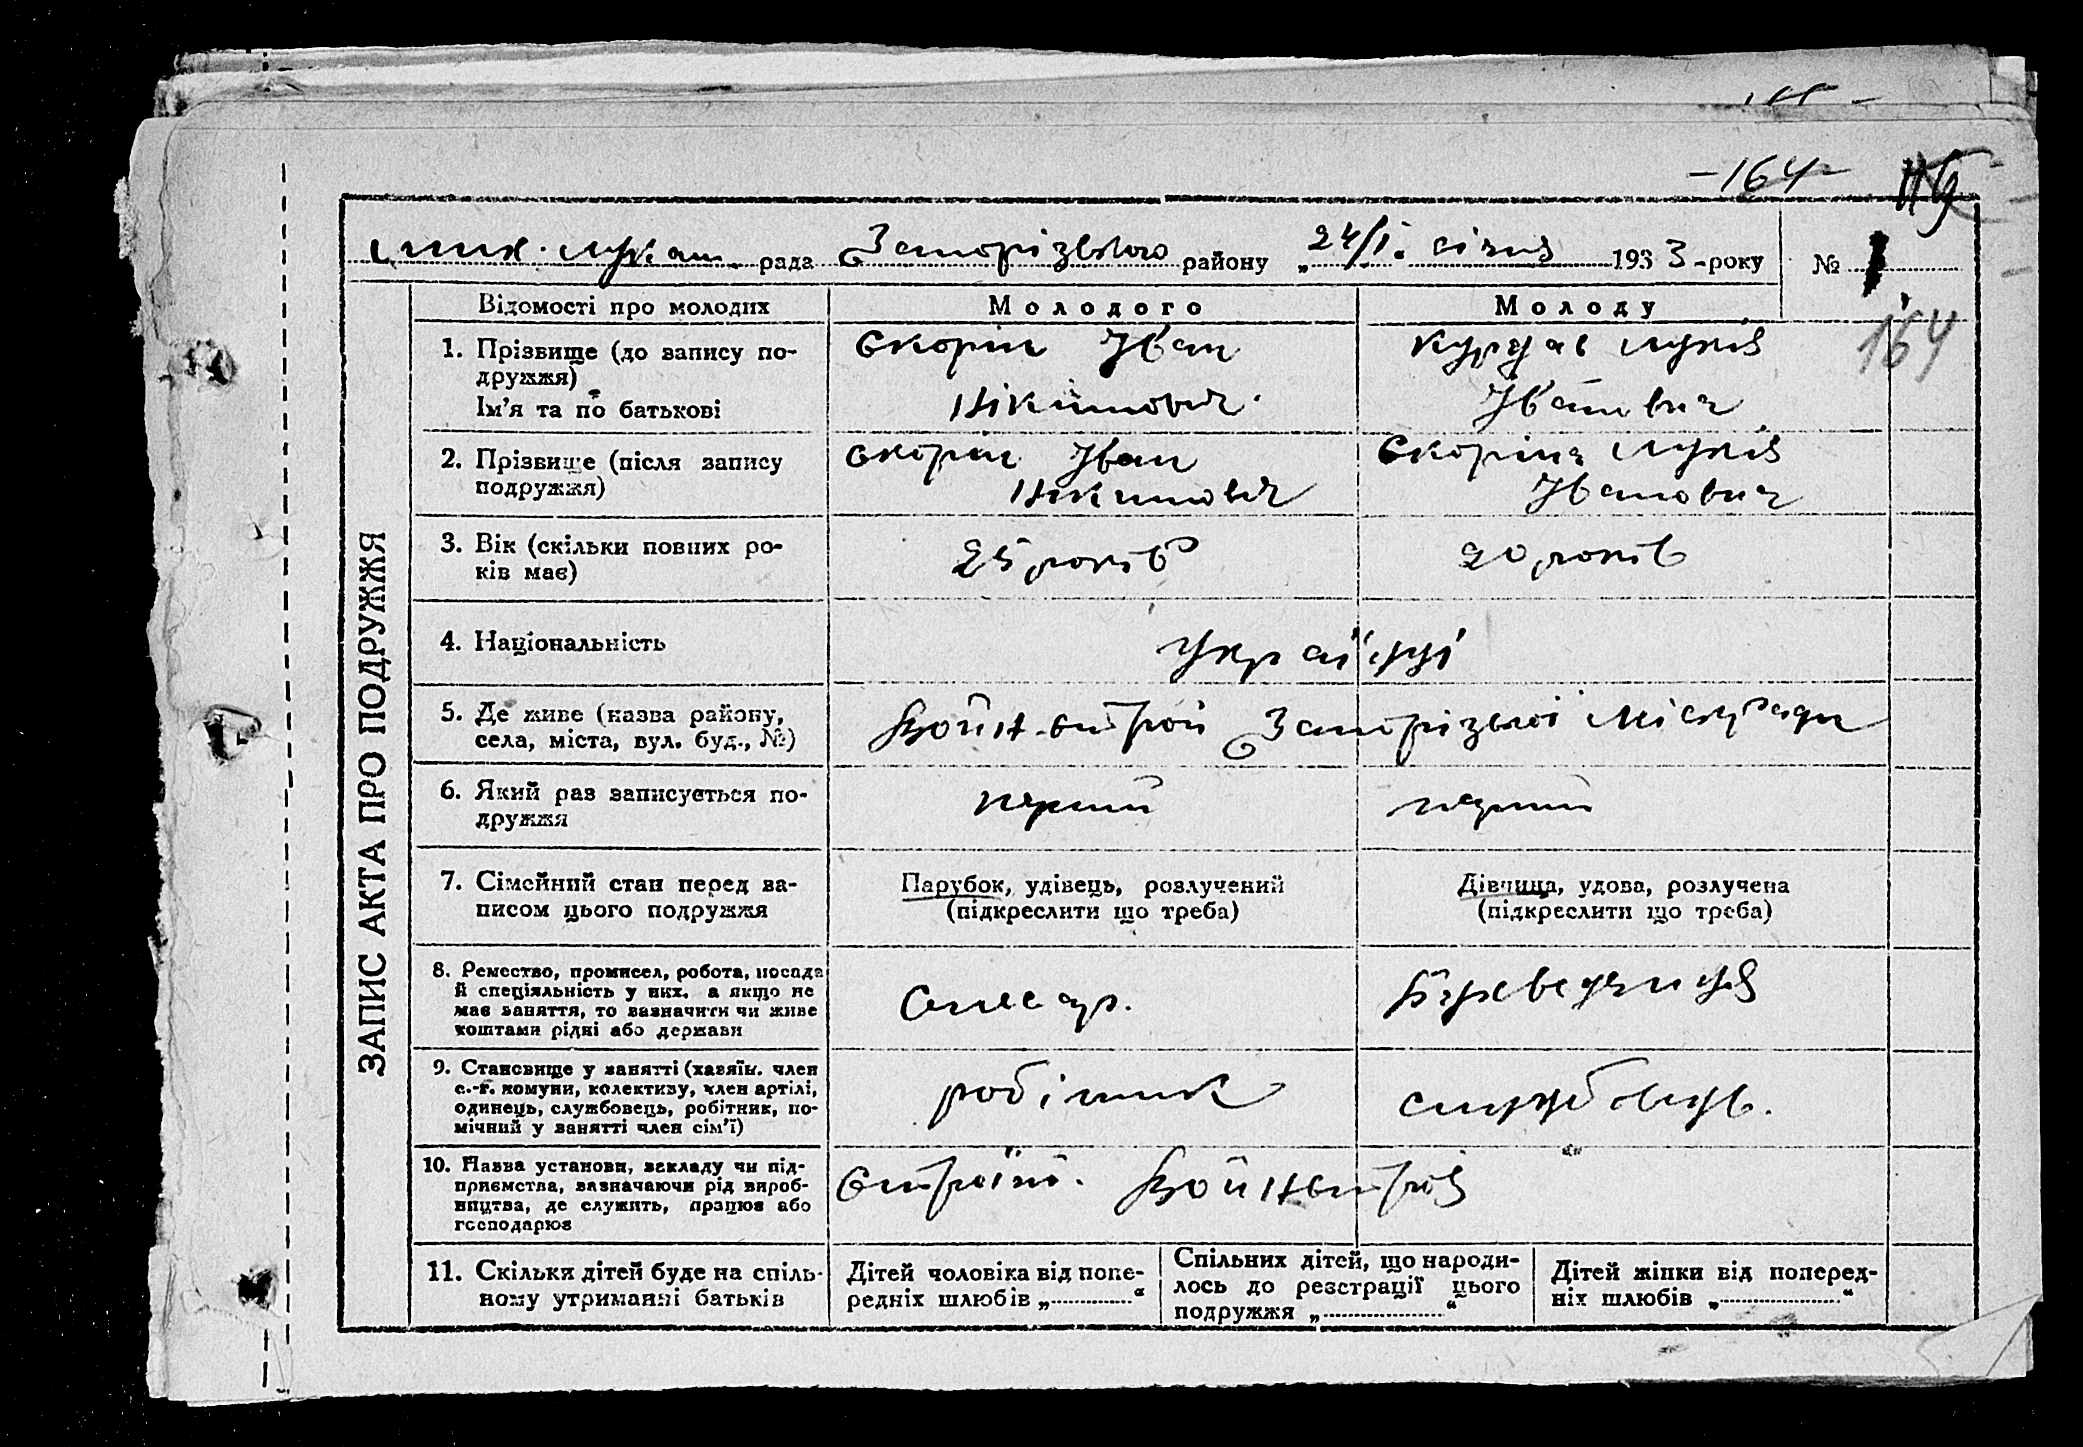 -164-
рада Запорізького району „24/І. січня 1933-року №
164
ЗАПИС АКТА ПРО ПОДРУЖЖЯ
Відомості про молодих
Молодого
Молоду
1. Прізвище (до запису по-
дружжя)
Ім'я та по батькові
Скорін Іван
Нікитович.
Іванович
2. Прізвище (після запису
подружжя)
Скорін Іван
Нікитович
Скоріна
Іванович
3. Вік (скільки повних ро-
ків має)
25 років
20 років
4. Національність
Українці
5. Де живе (назва району,
села, міста, вул. буд., №)
Запорізької Міськради
6. Який раз записується по-
дружжя
перший
перший
7. Сімейний стан перед за-
писом цього подружжя
Парубок, удівець, розлучений
(підкреслити що треба)
Дівчина, удова, розлучена
(підкреслити що треба)
8. Ремество, промисел, робота, посада
й спеціяльність у них, а якщо не
має заняття, то зазначити чи живе
коштами рідні або держави
Слесар.
9. Становище у занятті (хазяїн, член
с.-г. комуни, колективу, член артілі,
одинець, службовець, робітник, по-
мічний у занятті член сім'ї)
робітник
службовець.
10. Назва установи, закладу чи під-
приємства, зазначаючи рід вироб-
ництва, де служить, працює або
господарює
11. Скільки дітей буде на спіль-
ному утриманні батьків
Дітей чоловіка від попе-
редніх шлюбів „ “
Спільних дітей, що народи-
лось до реєстрації цього
подружжя „ “
Дітей жінки від поперед-
ніх шлюбів „ “